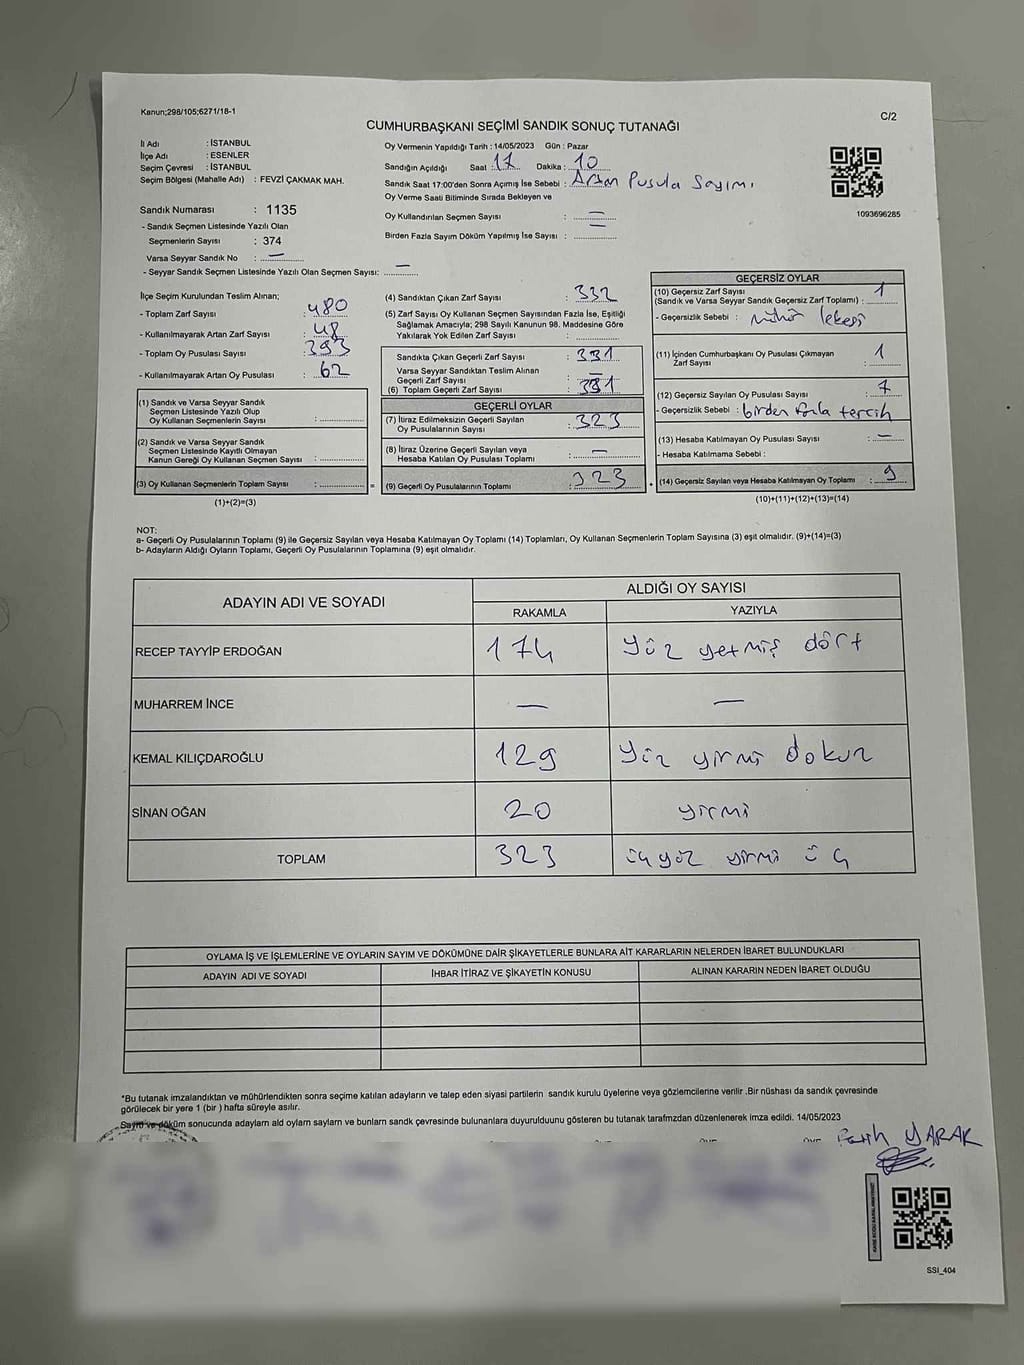 Kanun;298/105;6271/18-1
C/2
CUMHURBAŞKANI SEÇİMİ SANDIK SONUÇ TUTANAĞI
İl Adı : İSTANBUL
İlçe Adı : ESENLER
Seçim Çevresi : İSTANBUL
Seçim Bölgesi (Mahalle Adı) : FEVZİ ÇAKMAK MAH.
Sandık Numarası : 1135
- Sandık Seçmen Listesinde Yazılı Olan
Seçmenlerin Sayısı : 374
Varsa Seyyar Sandık No : —
- Seyyar Sandık Seçmen Listesinde Yazılı Olan Seçmen Sayısı: —
Oy Vermenin Yapıldığı Tarih : 14/05/2023 Gün : Pazar
Sandığın Açıldığı Saat : 17 Dakika : 10
Sandık Saat 17:00'den Sonra Açımış İse Sebebi : Artan Pusula Sayımı
Oy Verme Saati Bitiminde Sırada Bekleyen ve
Oy Kullandırılan Seçmen Sayısı : —
Birden Fazla Sayım Döküm Yapılmış İse Sayısı : —
1093696285
İlçe Seçim Kurulundan Teslim Alınan;
- Toplam Zarf Sayısı : 480
- Kullanılmayarak Artan Zarf Sayısı : 48
- Toplam Oy Pusulası Sayısı : 393
- Kullanılmayarak Artan Oy Pusulası : 62
(1) Sandık ve Varsa Seyyar Sandık
Seçmen Listesinde Yazılı Olup
Oy Kullanan Seçmenlerin Sayısı :
(2) Sandık ve Varsa Seyyar Sandık
Seçmen Listesinde Kayıtlı Olmayan
Kanun Gereği Oy Kullanan Seçmen Sayısı :
(3) Oy Kullanan Seçmenlerin Toplam Sayısı :
(1)+(2)=(3)
(4) Sandıktan Çıkan Zarf Sayısı : 332
(5) Zarf Sayısı Oy Kullanan Seçmen Sayısından Fazla İse, Eşitliği
Sağlamak Amacıyla; 298 Sayılı Kanunun 98. Maddesine Göre
Yakılarak Yok Edilen Zarf Sayısı :
Sandıkta Çıkan Geçerli Zarf Sayısı : 331
Varsa Seyyar Sandıktan Teslim Alınan
Geçerli Zarf Sayısı : —
(6) Toplam Geçerli Zarf Sayısı : 331
GEÇERLİ OYLAR
(7) İtiraz Edilmeksizin Geçerli Sayılan
Oy Pusulalarının Sayısı : 323
(8) İtiraz Üzerine Geçerli Sayılan veya
Hesaba Katılan Oy Pusulası Toplamı : —
= (9) Geçerli Oy Pusulalarının Toplamı : 323
GEÇERSİZ OYLAR
(10) Geçersiz Zarf Sayısı
(Sandık ve Varsa Seyyar Sandık Geçersiz Zarf Toplamı) : 1
- Geçersizlik Sebebi : mühür lekesi
(11) İçinden Cumhurbaşkanı Oy Pusulası Çıkmayan
Zarf Sayısı : 1
(12) Geçersiz Sayılan Oy Pusulası Sayısı : 7
- Geçersizlik Sebebi : birden fazla tercih
(13) Hesaba Katılmayan Oy Pusulası Sayısı : —
- Hesaba Katılmama Sebebi :
(14) Geçersiz Sayılan veya Hesaba Katılmayan Oy Toplamı : 9
(10)+(11)+(12)+(13)=(14)
NOT:
a- Geçerli Oy Pusulalarının Toplamı (9) ile Geçersiz Sayılan veya Hesaba Katılmayan Oy Toplamı (14) Toplamları, Oy Kullanan Seçmenlerin Toplam Sayısına (3) eşit olmalıdır. (9)+(14)=(3)
b- Adayların Aldığı Oyların Toplamı, Geçerli Oy Pusulalarının Toplamına (9) eşit olmalıdır.
ADAYIN ADI VE SOYADI
ALDIĞI OY SAYISI
RAKAMLA YAZIYLA
RECEP TAYYİP ERDOĞAN 174 Yüz yetmiş dört
MUHARREM İNCE — —
KEMAL KILIÇDAROĞLU 129 Yüz yirmi dokuz
SİNAN OĞAN 20 yirmi
TOPLAM 323 üçyüz yirmi üç
OYLAMA İŞ VE İŞLEMLERİNE VE OYLARIN SAYIM VE DÖKÜMÜNE DAİR ŞİKAYETLERLE BUNLARA AİT KARARLARIN NELERDEN İBARET BULUNDUKLARI
ADAYIN ADI VE SOYADI İHBAR İTİRAZ VE ŞİKAYETİN KONUSU ALINAN KARARIN NEDEN İBARET OLDUĞU
*Bu tutanak imzalandıktan ve mühürlendikten sonra seçime katılan adayların ve talep eden siyasi partilerin sandık kurulu üyelerine veya gözlemcilerine verilir .Bir nüshası da sandık çevresinde
görülecek bir yere 1 (bir ) hafta süreyle asılır.
Sayım ve döküm sonucunda adayların ald oyların sayların ve bunların sandk çevresinde bulunanlara duyurulduunu gösteren bu tutanak tarafmzdan düzenlenerek imza edildi. 14/05/2023
Fatih YARAK
SSI_404